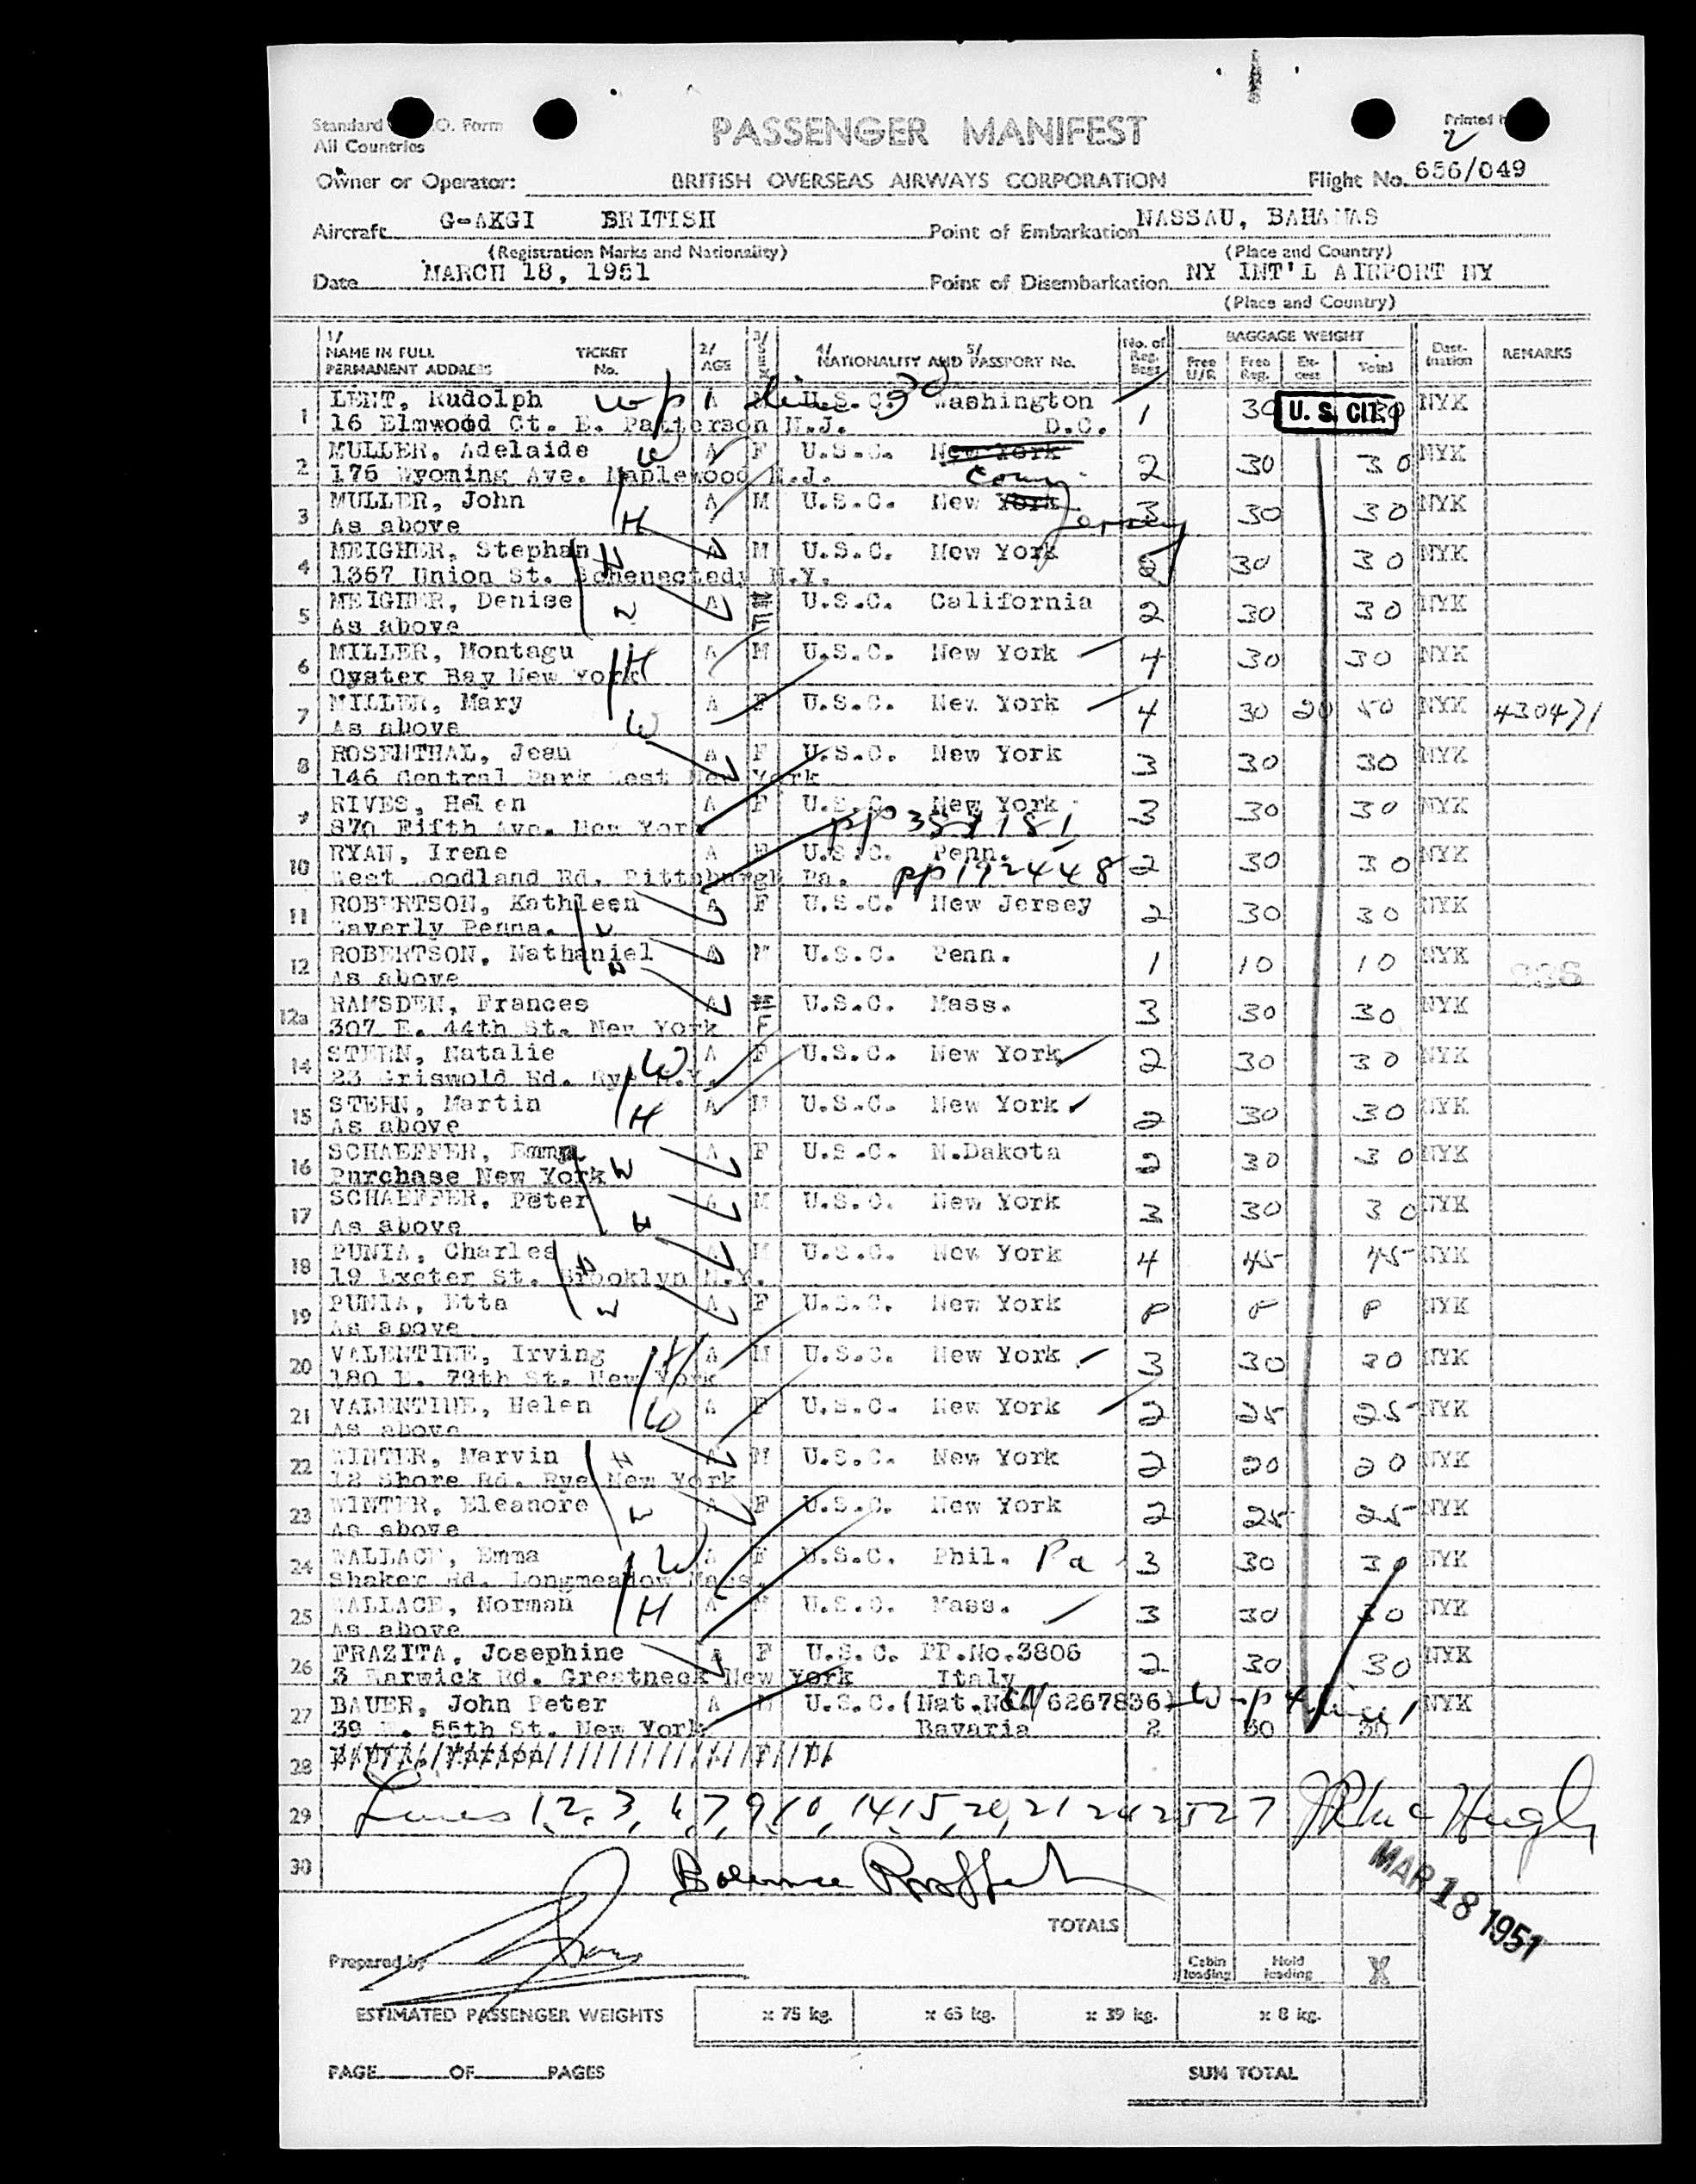 Standard O. Form
All Countries
PASSENGER MANIFEST
Printed
2
Owner or Operator: BRITISH OVERSEAS AIRWAYS CORPORATION Flight No. 656/049
Aircraft G-AKGI BRITISH Point of Embarkation NASSAU, BAHAMAS
(Registration Marks and Nationality) (Place and Country)
Date MARCH 18, 1951 Point of Disembarkation NY INT'L AIRPORT NY
(Place and Country)
1/ NAME IN FULL PERMANENT ADDRESS TICKET No. 2/ AGE 3/ 4/ NATIONALITY AND 5/ PASSPORT No. No. of Reg. Bags BAGGAGE WEIGHT Free U/R Free Reg. Ex-cess Total Dest-ination REMARKS
1 LENT, Rudolph w/p 1 A M line 30 U.S.C. Washington 1 30 U.S. CIT. 30 NYK
16 Elmwood Ct. E. Patterson N.J. D.C.
2 MULLER, Adelaide W A F U.S.C. New York 2 30 30 NYK
176 Wyoming Ave. Maplewood N.J. Conn
3 MULLER, John H A M U.S.C. New York Jersey 3 30 30 NYK
As above
4 MEIGHER, Stephan H A M U.S.C. New York 2 30 30 NYK
1367 Union St. Schenectady N.Y.
5 MEIGHER, Denise W A F U.S.C. California 2 30 30 NYK
As above
6 MILLER, Montagu H A M U.S.C. New York 4 30 30 NYK
Oyster Bay New York
7 MILLER, Mary W A F U.S.C. New York 4 30 20 50 NYK 430471
As above
8 ROSENTHAL, Jean A F U.S.C. New York 3 30 30 NYK
146 Central Park West New York
9 RIVES, Helen A F U.S.C. New York 3 30 30 NYK
870 Fifth Ave. New York pp
10 RYAN, Irene A F U.S.C. Penn. 2 30 30 NYK
West Woodland Rd. Pittsburgh Pa. pp 192448
11 ROBERTSON, Kathleen W A F U.S.C. New Jersey 2 30 30 NYK
Waverly Penna.
12 ROBERTSON, Nathaniel H A M U.S.C. Penn. 1 10 10 NYK
As above
12a RAMSDEN, Frances A F U.S.C. Mass. 3 30 30 NYK
307 E. 44th St. New York
14 STERN, Natalie W A F U.S.C. New York 2 30 30 NYK
23 Griswold Rd. Rye N.Y.
15 STERN, Martin H A M U.S.C. New York 2 30 30 NYK
As above
16 SCHAEFFER, Emma W A F U.S.C. N.Dakota 2 30 30 NYK
Purchase New York
17 SCHAEFFER, Peter H A M U.S.C. New York 3 30 30 NYK
As above
18 PUNIA, Charles H A M U.S.C. New York 4 45 45 NYK
19 Exeter St. Brooklyn N.Y.
19 PUNIA, Etta W A F U.S.C. New York P P P NYK
As above
20 VALENTINE, Irving H A M U.S.C. New York 3 30 30 NYK
180 E. 79th St. New York
21 VALENTINE, Helen W A F U.S.C. New York 2 25 25 NYK
As above
22 WINTER, Marvin H A M U.S.C. New York 2 20 20 NYK
12 Shore Rd. Rye New York
23 WINTER, Eleanore W A F U.S.C. New York 2 25 25 NYK
As above
24 WALLACE, Emma W A F U.S.C. Phil. Pa 3 30 30 NYK
Shaker Rd. Longmeadow Mass.
25 WALLACE, Norman H A M U.S.C. Mass. 3 30 30 NYK
As above
26 FRAZITA, Josephine A F U.S.C. PP.No.3806 2 30 30 NYK
3 Warwick Rd. Greatneck New York Italy
27 BAUER, John Peter A M U.S.C.(Nat.No. 6267836) w-p line 1 NYK
39 E. 55th St. New York Bavaria 2 30 30
28 BAUER, Marion A F U.
29 Lines 1, 2, 3, 6, 7, 9, 10, 14, 15, 20, 21 24 25 27
30
MAR 18 1951
TOTALS
Prepared by
Cabin loading Hold loading X
ESTIMATED PASSENGER WEIGHTS x 75 kg. x 65 kg. x 39 kg. x 8 kg.
PAGE OF PAGES SUM TOTAL